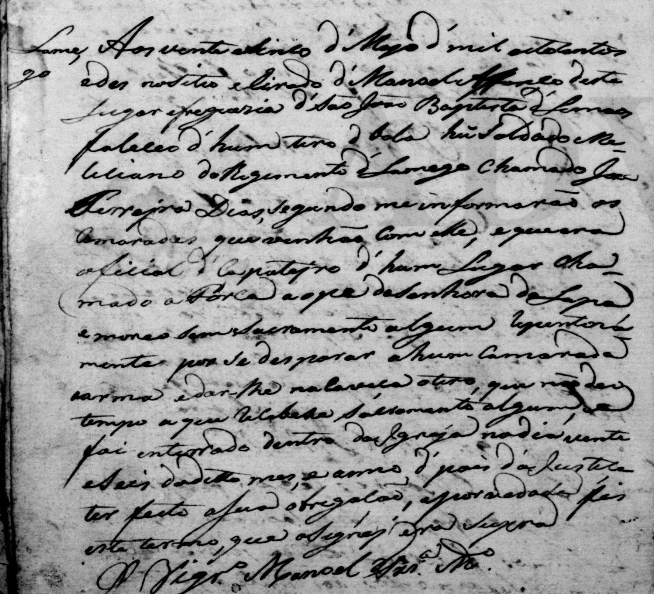 Lame
go
Aos vente e sinco d' Mayo d' mil oitosentos
e des no sitio e lirado d' Manoel Affonço deste
Lugar e freguezia d' São João Baptista d'
faleceo d' hum tiro d' bala hũ Soldado Me-
liciano do Regimento d' Lamego Chamado Joze
Ferrejra Dias, segundo me informarão os
Camaradas, que venhão com elle, e que era
oficial d' Capatejro d' hum Lugar Cha-
mado a Forca ao pe da Senhora da Lapa
e moreo sem Sacramento algum repentoria
mente por se desparar a hum Camarada
a arma e dar-lhe na Caveca o tiro, que não deo
tempo a que recebese sacramento algum, e
foi interrado dentro da Igreja no dia vente
e seis do ditto mes, e anno, d'pois d'a Justica
ter feito a sua obrigacão, e por verdade fis
este termo, que asignej era supra
O Vigr.º Manoel